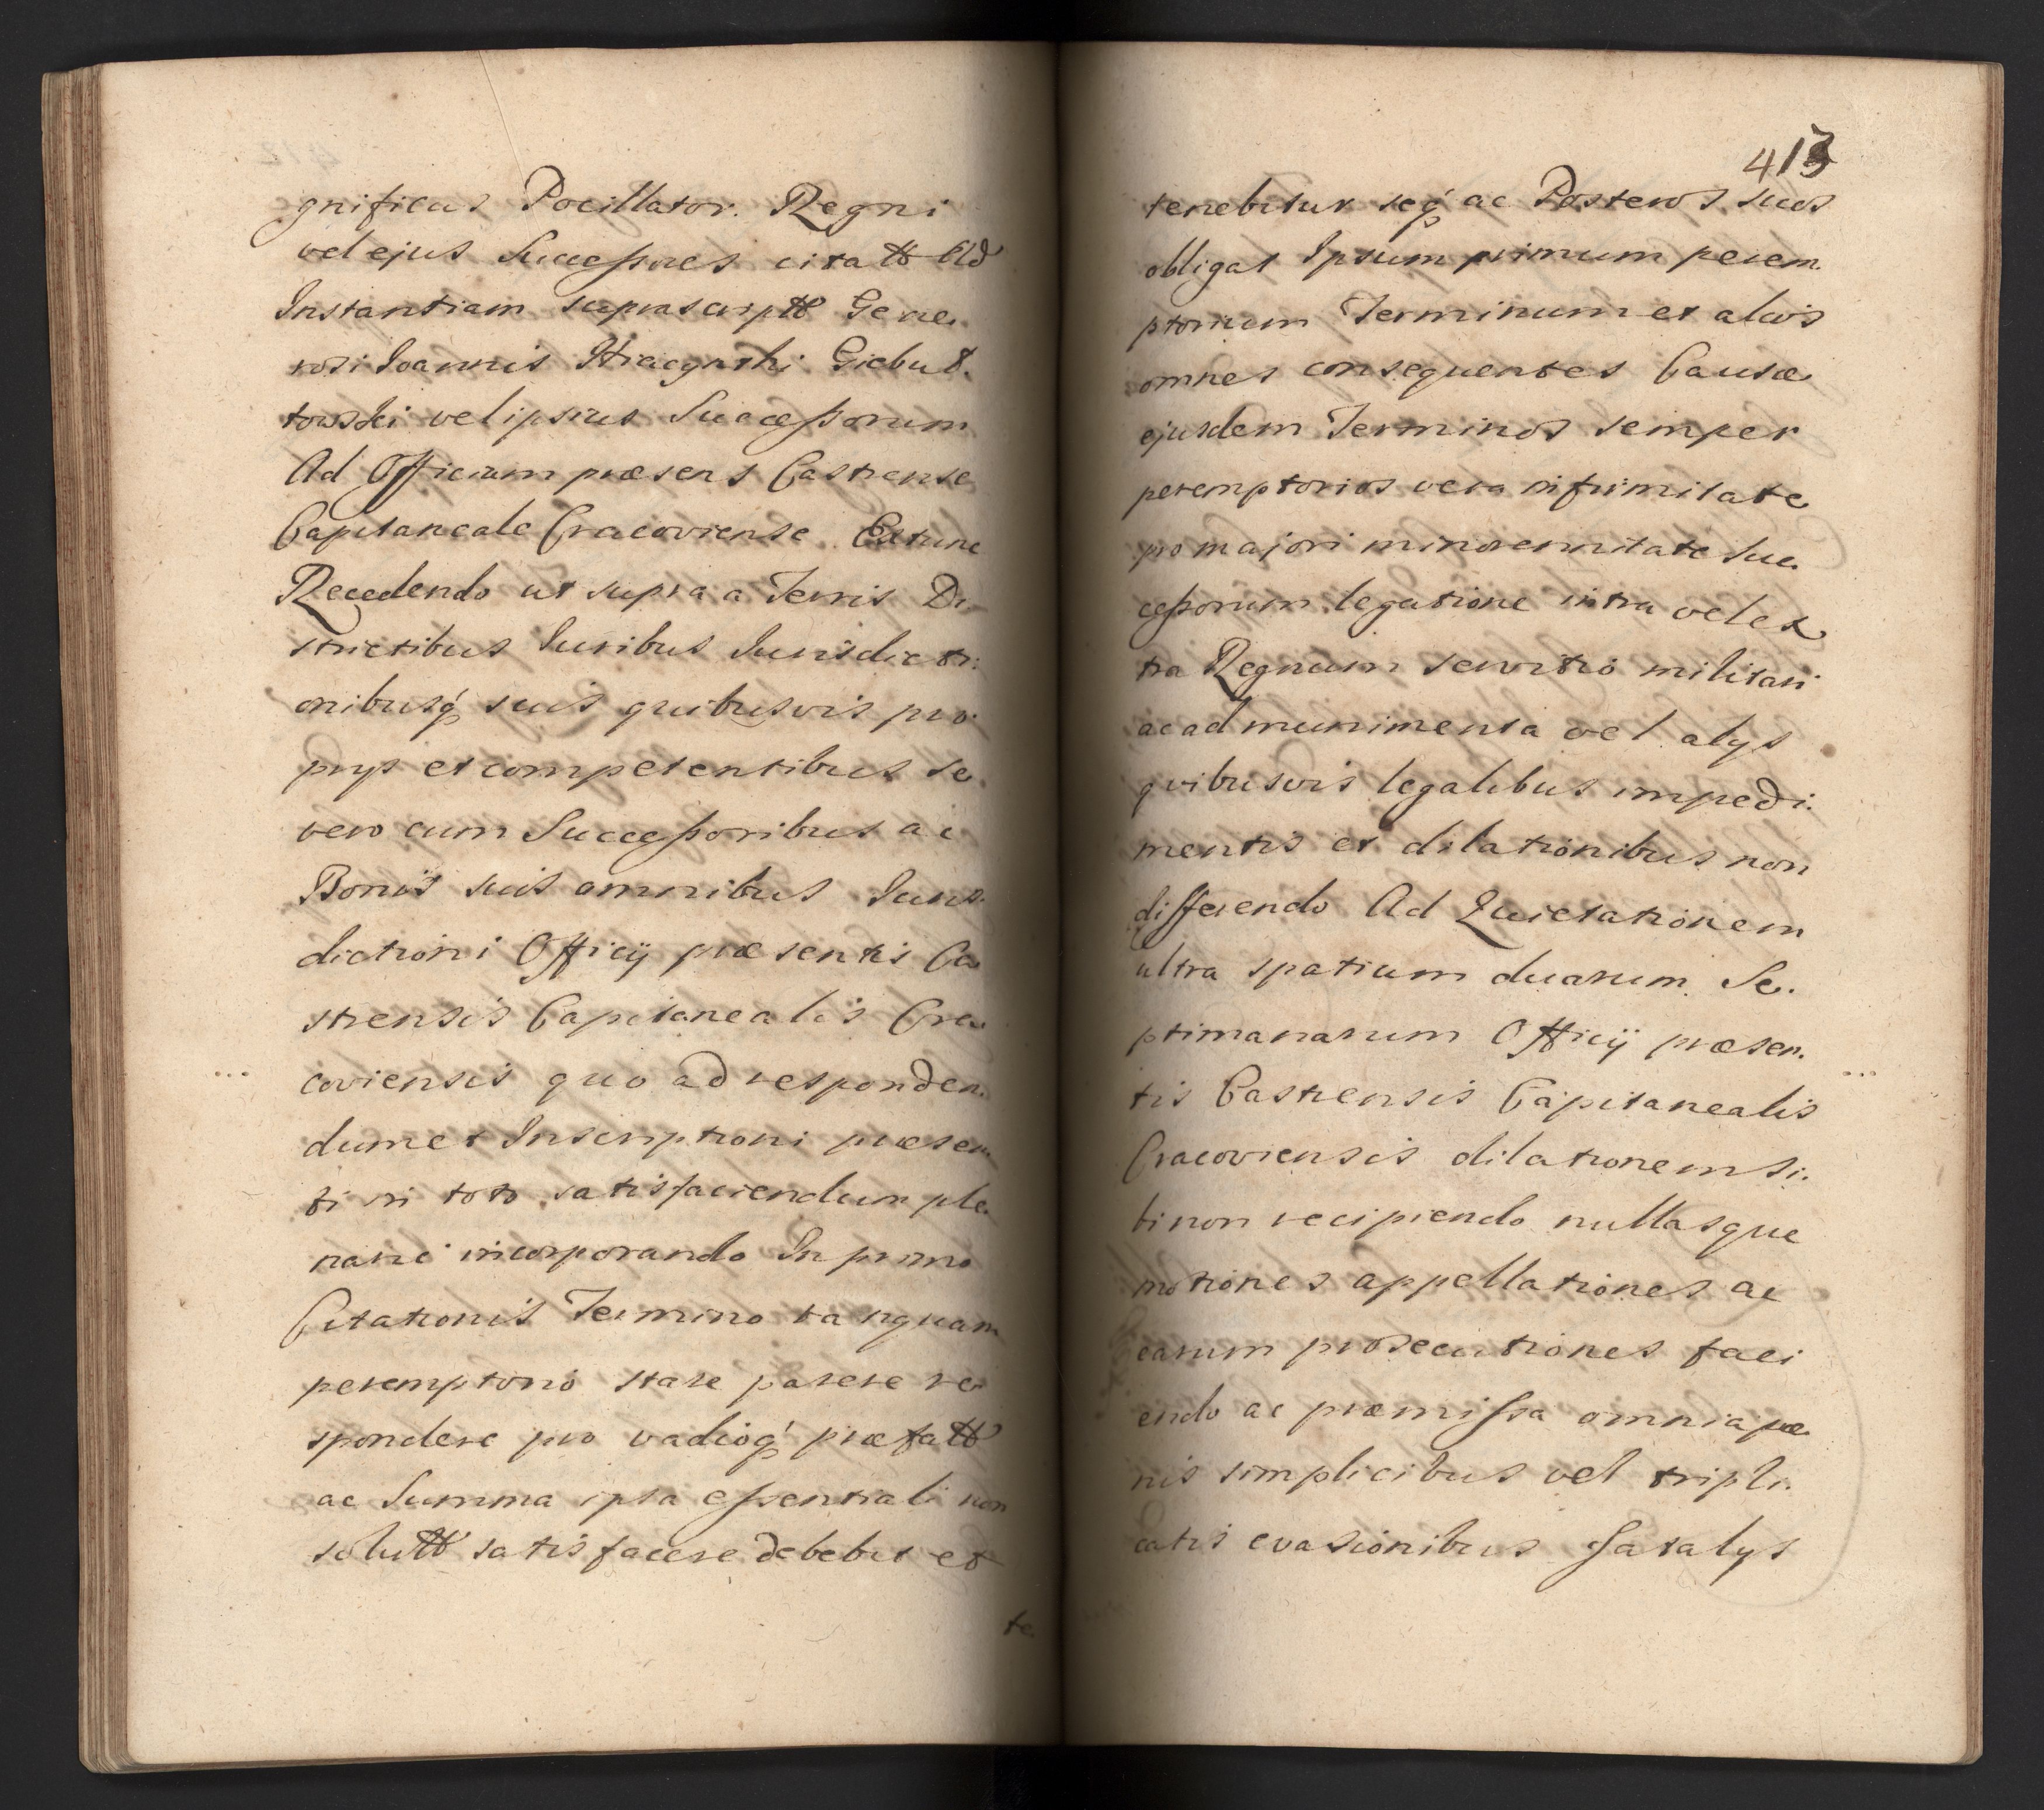 gnificus Pocillator Regni
vel ejus Successores citatt Ad
Instantiam suprascriptt Gene.
rosi Joannis Giebuł.
towski vel ipsius Successorum
Ad Officium præsens Castrense
Capitaneale Cracoviense Extunc
Recedendo ut supra a Terris Di
strictibus Iuribus Iurisdicti.
onibusq suis quibusvis pro
prijs et competentibus se
vero cum Successoribus ac
Bonis suis omnibus Juris.
dictioni Officij præsentis Ca
strensis Capitanealis Cra
coviensis quo ad responden.
dum et Inscriptioni præsen
ti in toto satisfaciendum ple
narie incorporando In primo
Citationis Termino tanquam
peremptorio stare parere re
spondere pro vadioq præfatt
ac Summa ipsa essentiali non
solutt satisfacere debebit et
te
413
tenebitur seq ac Posteros suos
obligat Ipsum primum perem.
ptorium Terminum et alios
omnes consequentes Causæ
ejusdem Terminos semper
peremptorios vera infirmitate
pro majori minorennitate Suc.
cessorum legatione intra vel ex
tra Regnum servitio militari
ac ad munimenta vel alijs
quibusvis legalibus impedi.
mentis et dilationibus non
differendo Ad Quietationem
ultra spatium duarum Se.
ptimanarum Officij præsen.
tis Castrensis Capitanealis
Cracoviensis dilationem si.
bi non recipiendo nullasque
motiones appellationes ac
earum prosecutiones faci
endo ac præmissa omnia pæ
nis simplicibus vel tripli.
catis evasionibus fatalijs